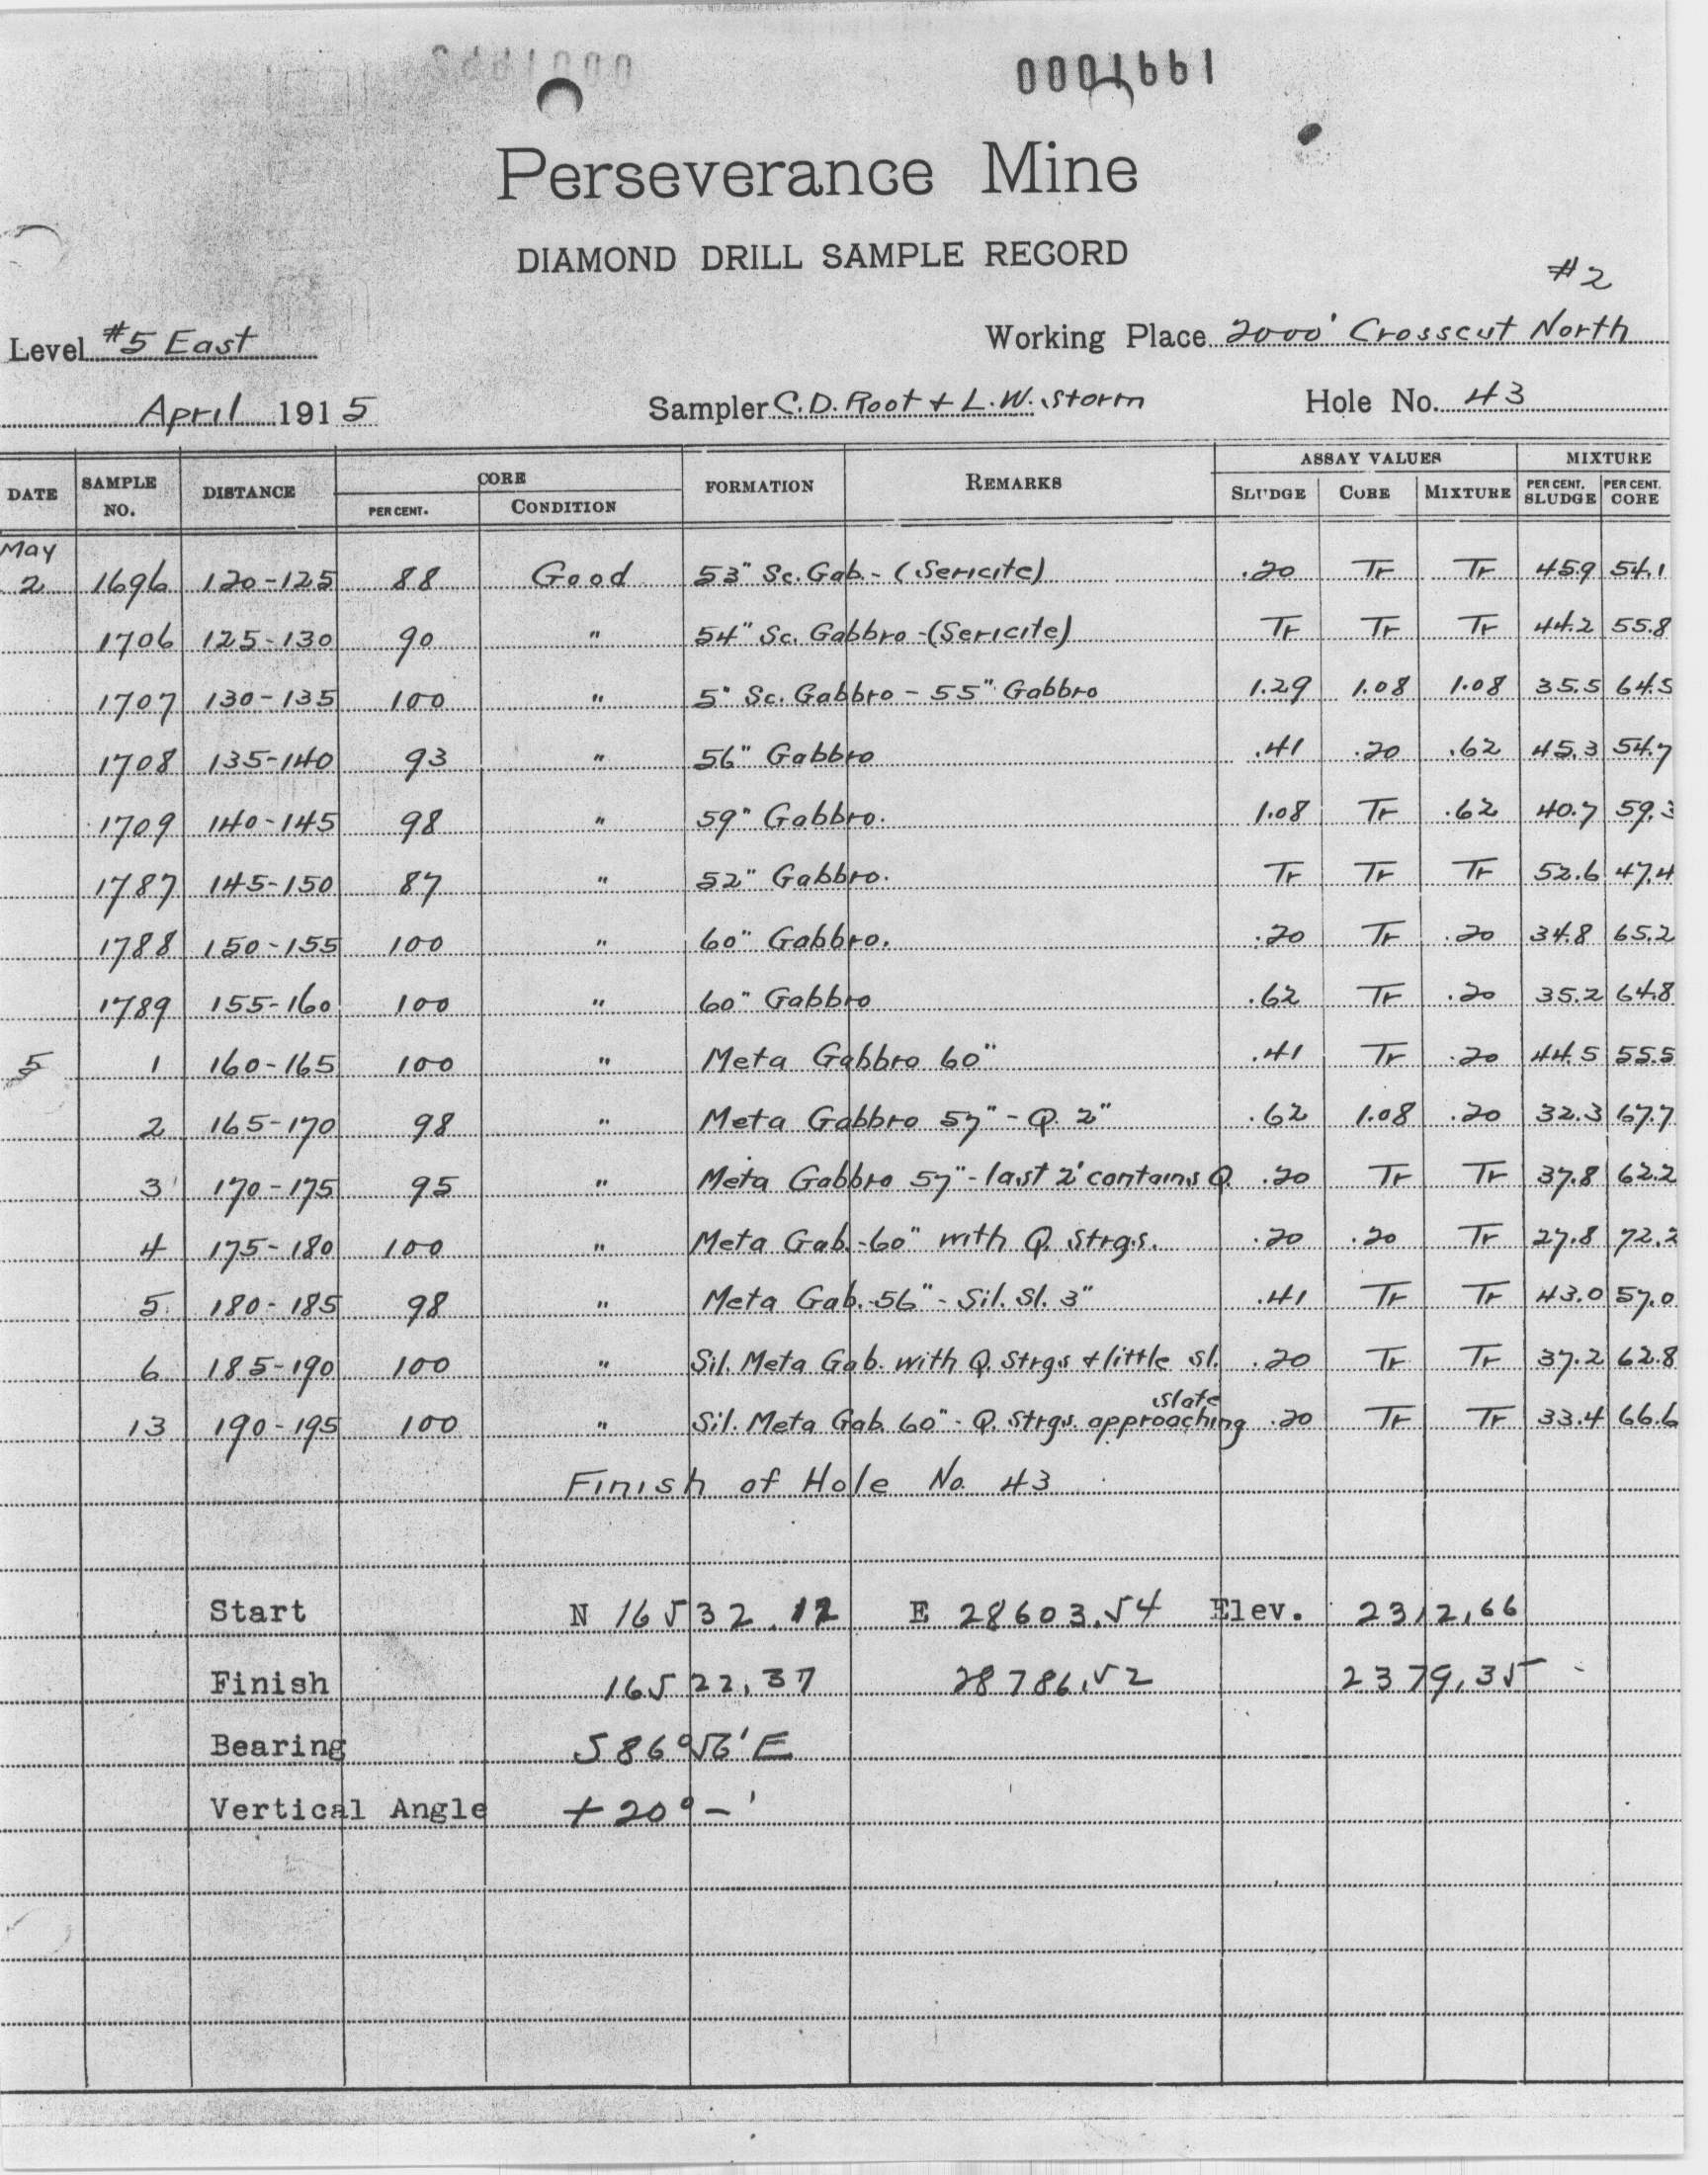 0001661
Perseverance Mine
DIAMOND DRILL SAMPLE RECORD
#2
Level #5 East Working Place 2000' Crosscut North
April 1915 Sampler C.D. Root + L.W. Storm Hole No. 43
DATE SAMPLE NO. DISTANCE CORE PER CENT. CONDITION FORMATION REMARKS ASSAY VALUES SLUDGE CORE MIXTURE MIXTURE PER CENT. SLUDGE PER CENT. CORE
May
2 1696 120-125 88 Good 53" Sc. Gab. - (Sericite) .20 Tr Tr 45.9 54.1
1706 125-130 90 " 54" Sc. Gabbro - (Sericite) Tr Tr Tr 44.2 55.8
1707 130-135 100 " 5" Sc. Gabbro - 55" Gabbro 1.29 1.08 1.08 35.5 64.5
1708 135-140 93 " 56" Gabbro .41 .20 .62 45.3 54.7
1709 140-145 98 " 59" Gabbro. 1.08 Tr .62 40.7 59.3
1787 145-150 87 " 52" Gabbro. Tr Tr Tr 52.6 47.4
1788 150-155 100 " 60" Gabbro. .20 Tr .20 34.8 65.2
1789 155-160 100 " 60" Gabbro .62 Tr .20 35.2 64.8
5 1 160-165 100 " Meta Gabbro 60" .41 Tr .20 44.5 55.5
2 165-170 98 " Meta Gabbro 57" - Q. 2" .62 1.08 .20 32.3 67.7
3 170-175 95 " Meta Gabbro 57" - last 2' contains Q .20 Tr Tr 37.8 62.2
4 175-180 100 " Meta Gab. - 60" with Q. Strgs. .20 .20 Tr 27.8 72.2
5 180-185 98 " Meta Gab. - 56" - Sil. Sl. 3" .41 Tr Tr 43.0 57.0
6 185-190 100 " Sil. Meta Gab. with Q. Strgs + little sl. .20 Tr Tr 37.2 62.8
slate
13 190-195 100 " Sil. Meta Gab. 60" - Q. Strgs. approaching .20 Tr Tr 33.4 66.6
Finish of Hole No. 43
Start N 16532.12 E 28603.54 Elev. 2312.66
Finish 16522.37 28786.52 2379.35
Bearing S 86° 56' E
Vertical Angle + 20° - '